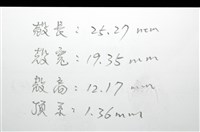 殼長：25.27 mm
殼寬：19.35 mm
殼高：12.17 mm
頂系：1.36 mm